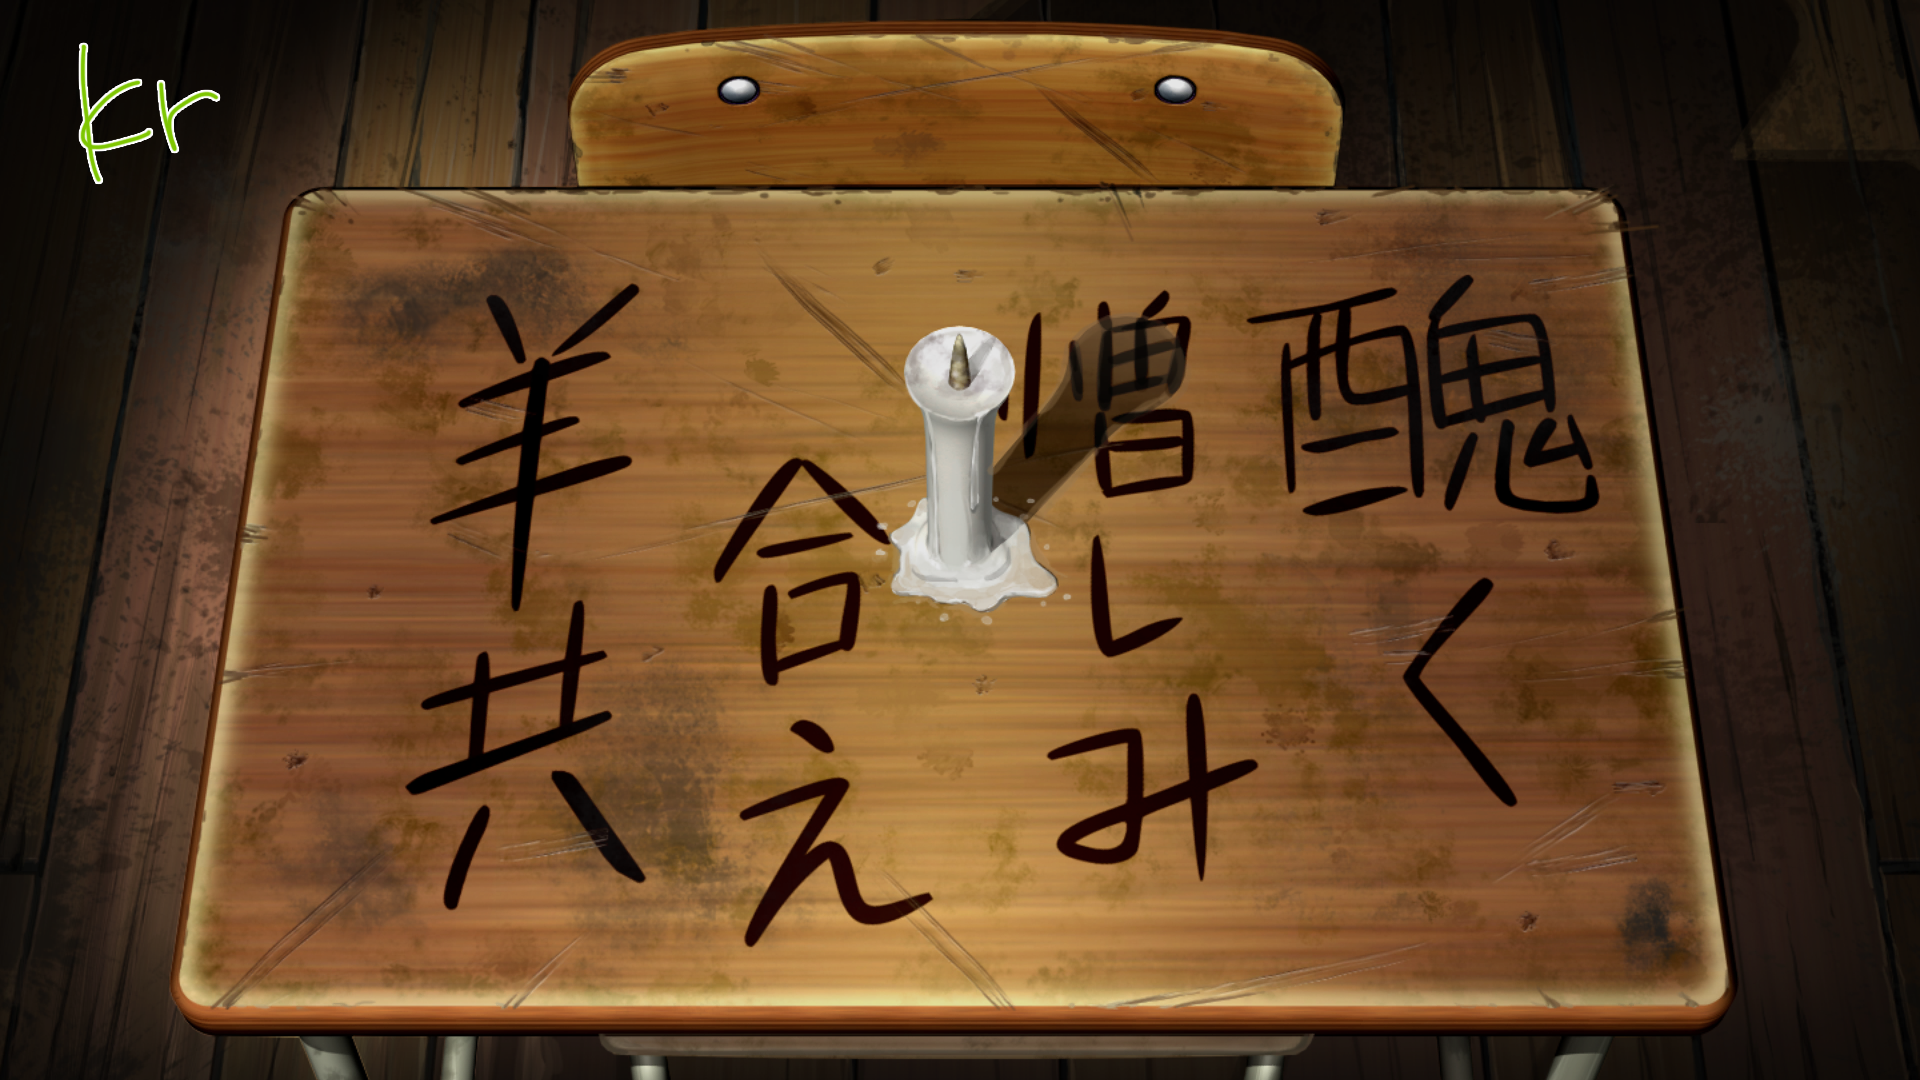 kr
醜く
憎しみ
合え
羊共